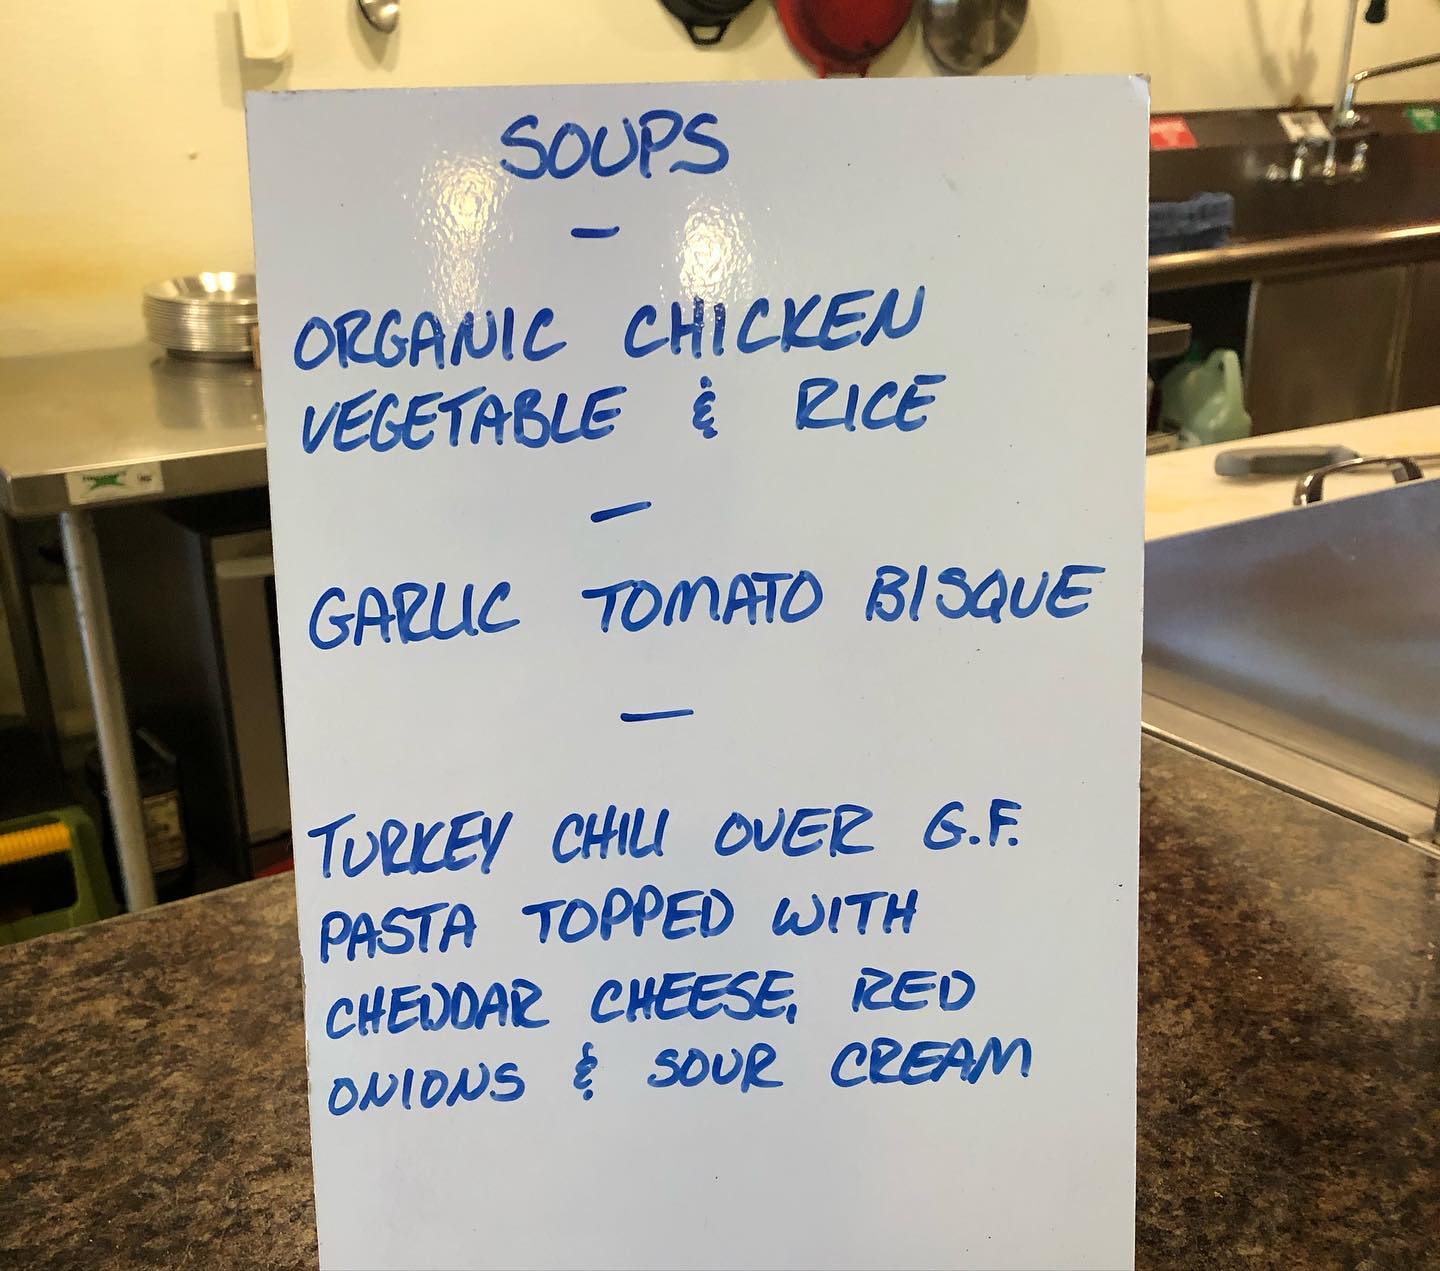 SOUPS
–
ORGANIC CHICKEN
VEGETABLE & RICE
–
GARLIC TOMATO BISQUE
–
TURKEY CHILI OVER G.F.
PASTA TOPPED WITH
CHEDDAR CHEESE, RED
ONIONS & SOUR CREAM